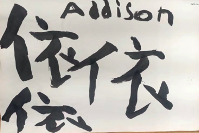 Addison
依依
依